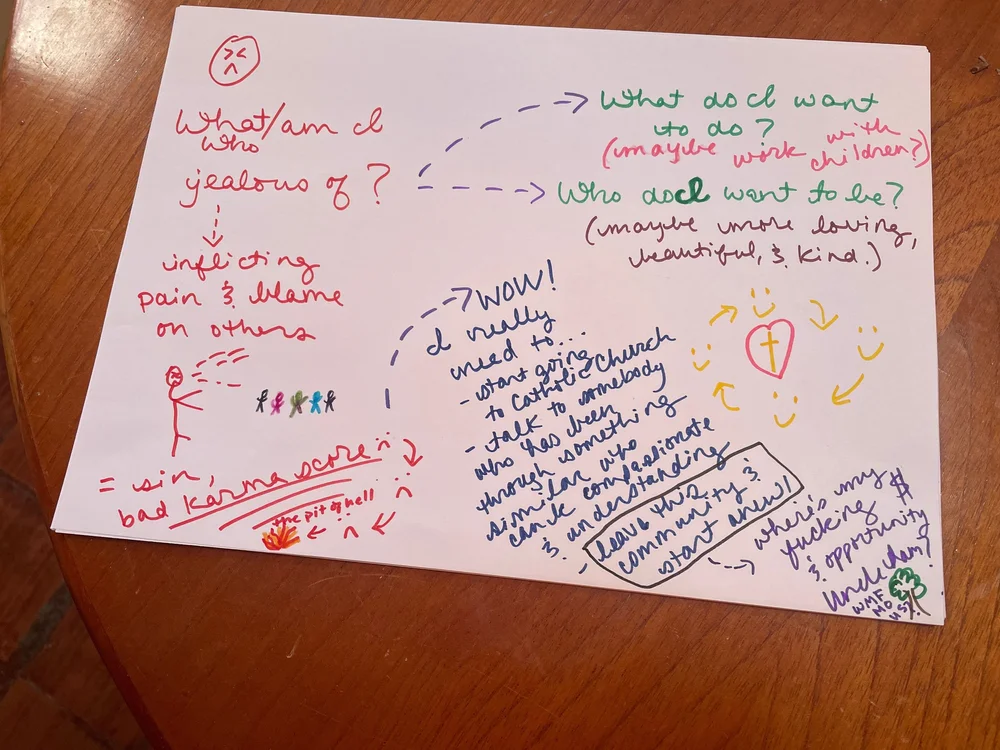 What/am I
who
jealous of?
inflicting
pain & blame
on others
= sin,
bad karma score
the pit of hell
What do I want
to do?
(maybe work with
children?)
Who do I want to be?
(maybe more loving,
beautiful, & kind.)
WOW!
I really
need to...
- start going
to Catholic Church
- talk to somebody
who has been
through something
similar who
can be compassionate
& understanding
- leave this
community &
start anew!
where's my
fucking $
& opportunity
Uncle Sam?
WMF
MO